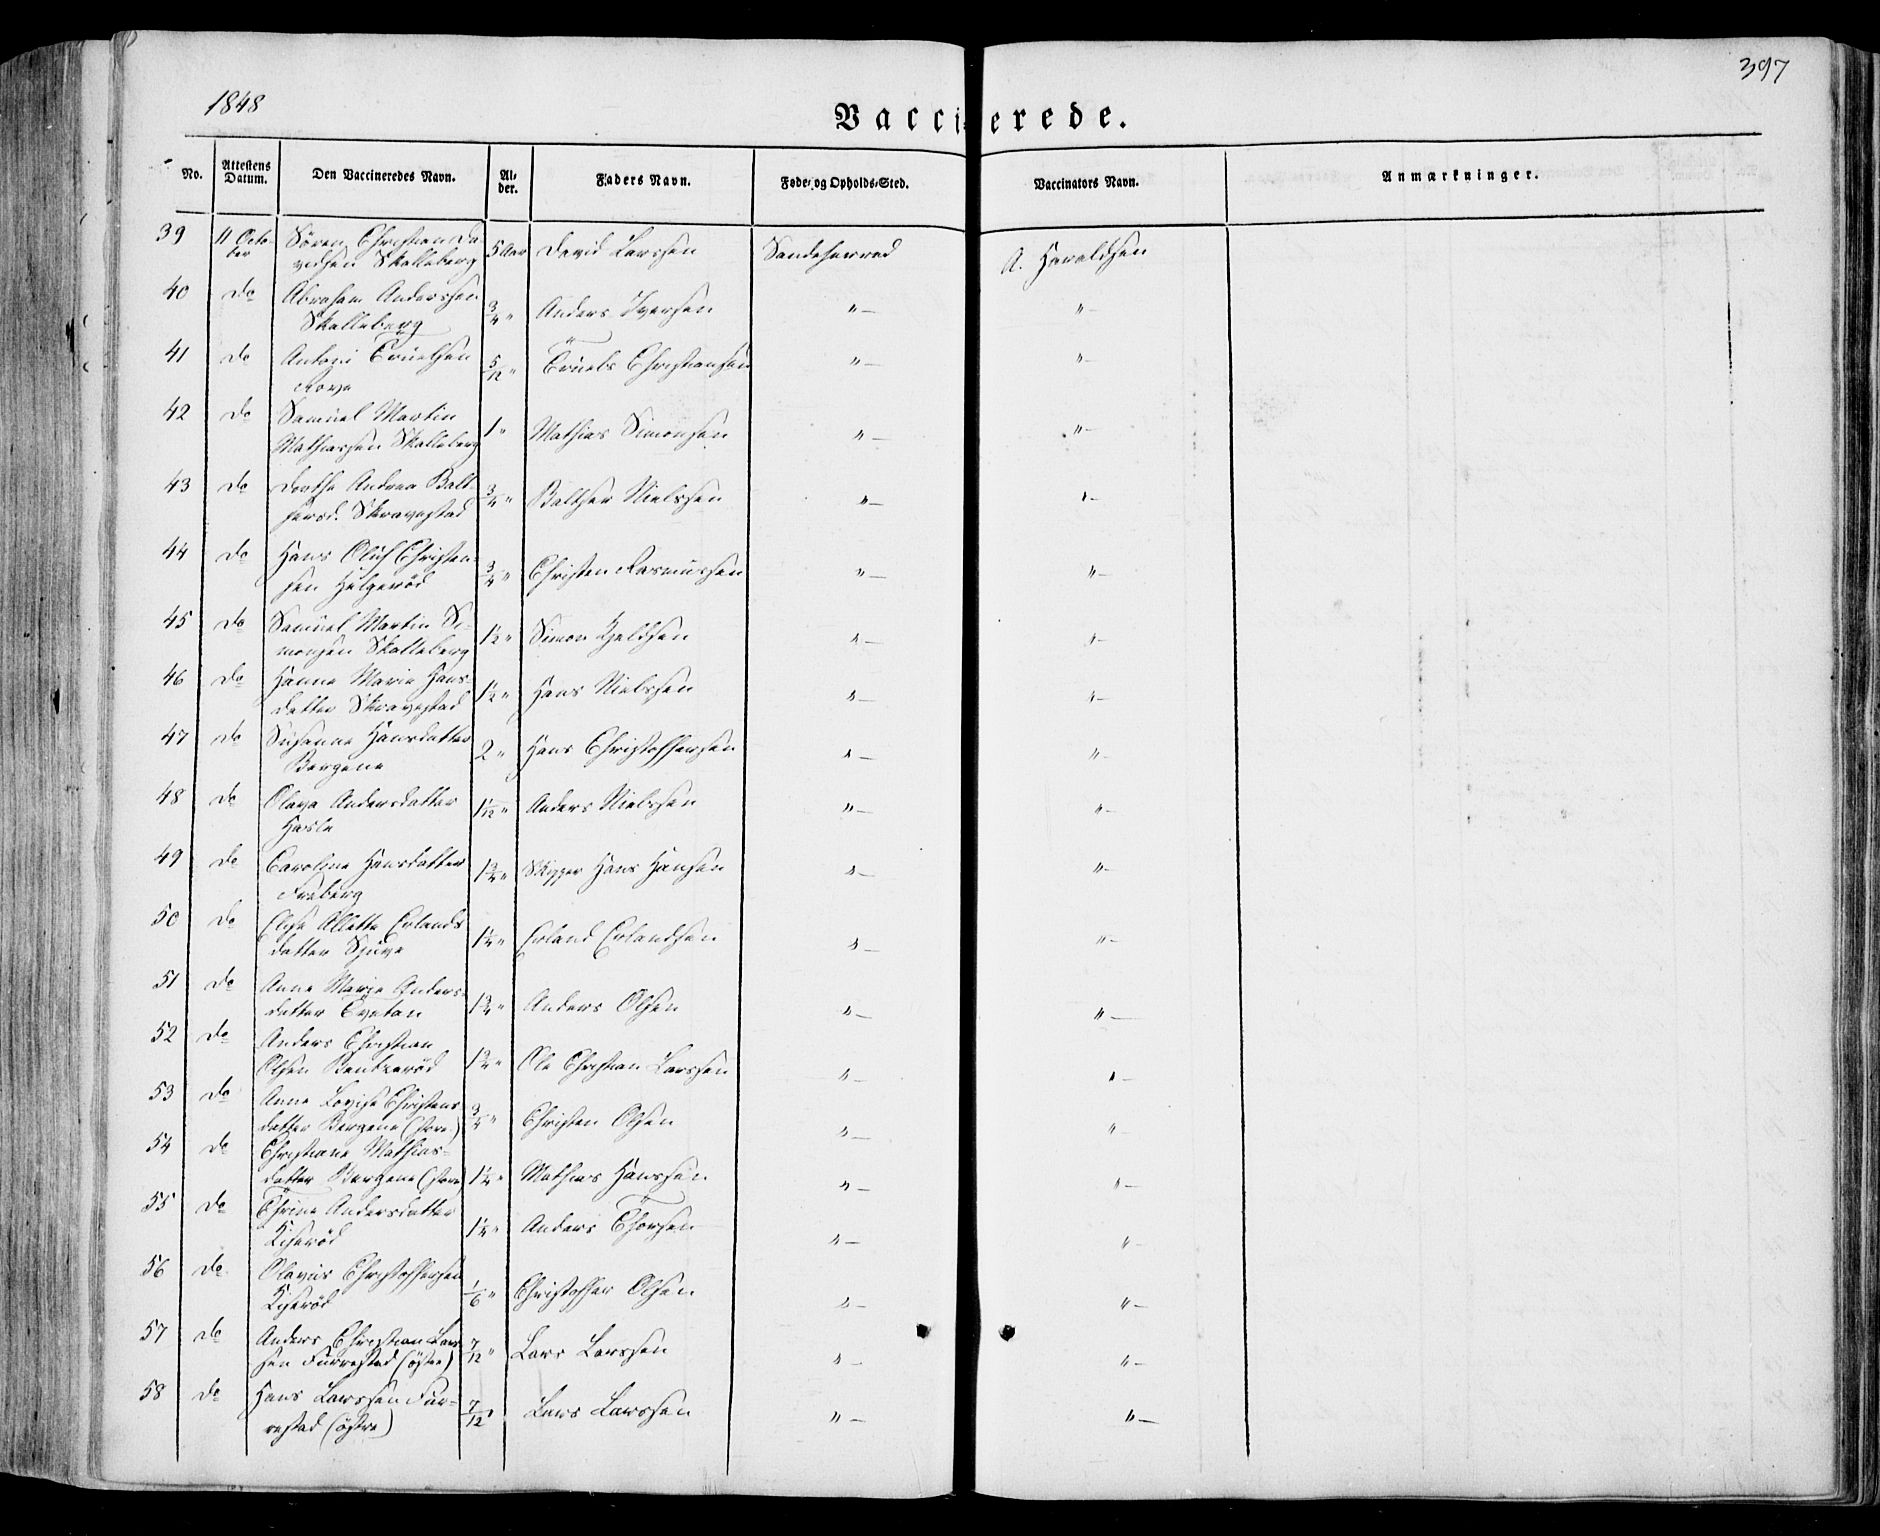 1848
397
Vaccinerede.
No. Attestens Datum. Den Vaccineredes Navn. Alder. Faders Navn. Føde- og Opholds-Sted. Vaccinators Navn. Anmærkninger.
39 11 Octo- Sören Christian Da-
ber vidsen Skalleberg 5 Aar David Larssen Sandeherred A. Haraldsen
40 do Abraham Anderssen
Skalleberg 3/4 " Anders Iversen "— "—
41 do Antoni Truelsen
Rova 5/12 " Truels Christiansen "— "—
42 do Samuel Martin
Mathiassen Skalleberg 1 " Mathias Simonsen "— "—
43 do Dorthe Andrea Balt-
hersd. Skravestad 3/4 " Balther Nielssen "— "—
44 do Hans Oluf Christen-
sen Helgeröd 3/4 " Christen Rasmussen "— "—
45 do Samuel Martin Si-
monsen Skalleberg 1 1/2 " Simon Kjeldsen "— "—
46 do Hanne Marie Hans-
datter Skravestad 1 1/2 " Hans Nielssen "— "—
47 do Susanne Hansdatter
Bergene 2 " Hans Christoffersen "— "—
48 do Olava Andersdatter
Hasle 1 1/12 " Anders Nielssen "— "—
49 do Caroline Hansdatter
Freberg 1 3/4 " Skipper Hans Hansen "— "—
50 do Elise Alette Erlands
datter Sjuve 1 1/4 " Erland Erlandsen "— "—
51 do Anne Marie Anders-
datter Tveten 1 3/4 " Anders Olsen "— "—
52 do Anders Christian
Olsen 1 3/4 " Ole Christian Larssen "— "—
53 do Anne Lovise Christens-
datter Bergene (store) 3/4 " Christen Olsen "— "—
54 do Christiane Mathias-
datter Bergene (store) 1 1/4 " Mathias Hanssen "— "—
55 do Thrine Andersdatter
Kiseröd 1 1/4 " Anders Thorsen "— "—
56 do Olavus Christoffersen
Kiseröd 1/6 " Christoffer Olsen "— "—
57 do Anders Christian Lars-
sen Furrestad (östre) 7/12 " Lars Larssen "— "—
58 do Hans Larssen Fur-
restad (östre) 7/12 " Lars Larssen "— "—